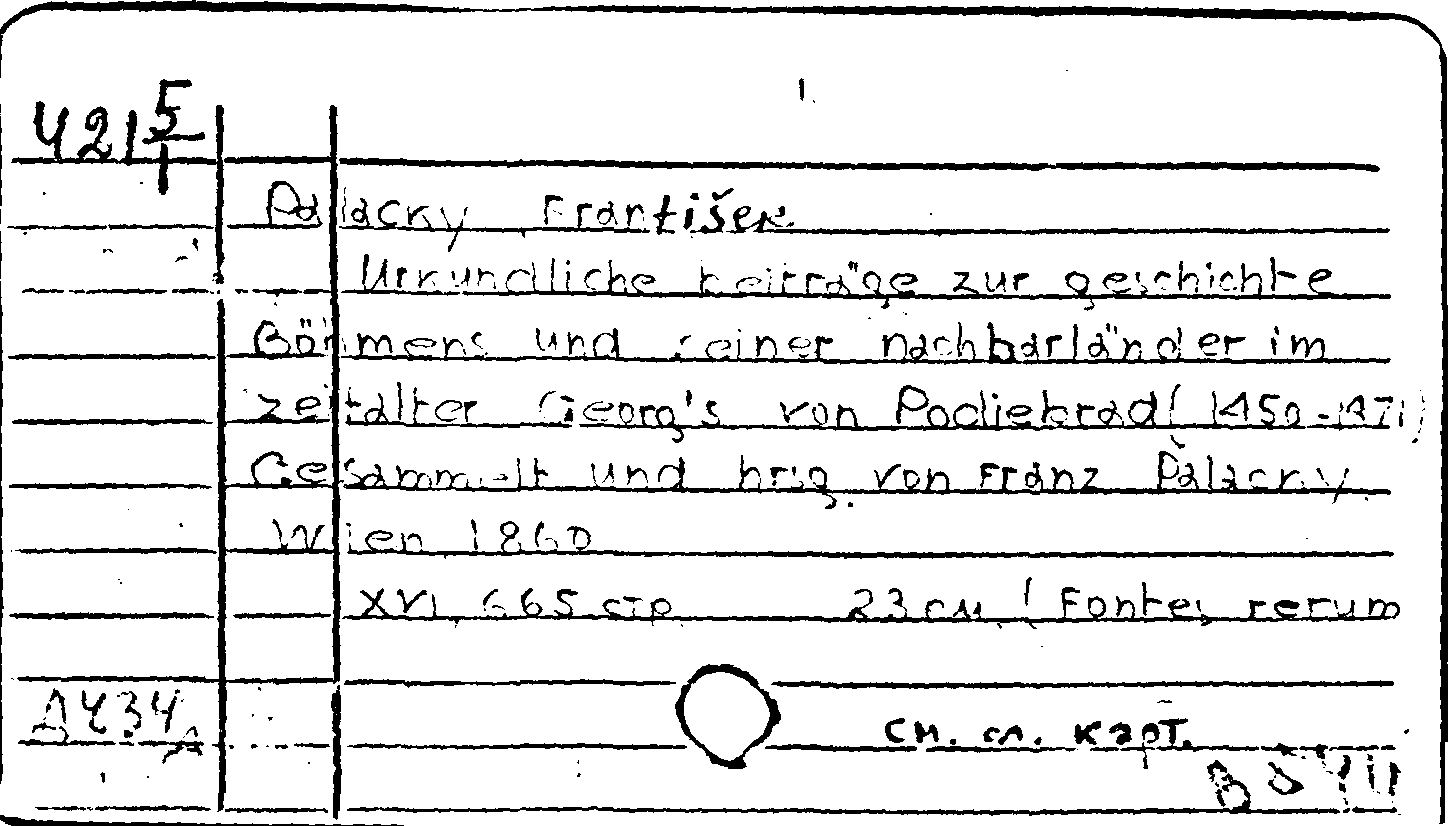 421 5/1
Palacky, František
Urkundliche beiträge zur geschichte
Böhmens und seiner nachbarländer im
zeitalter Georg's von Podiebrad (1450-1471)
Gesammelt und hrsg. von Franz Palacky
Wien, 1860
XVI, 665 стр. 23 см. (Fontes rerum
см. сл. карт.